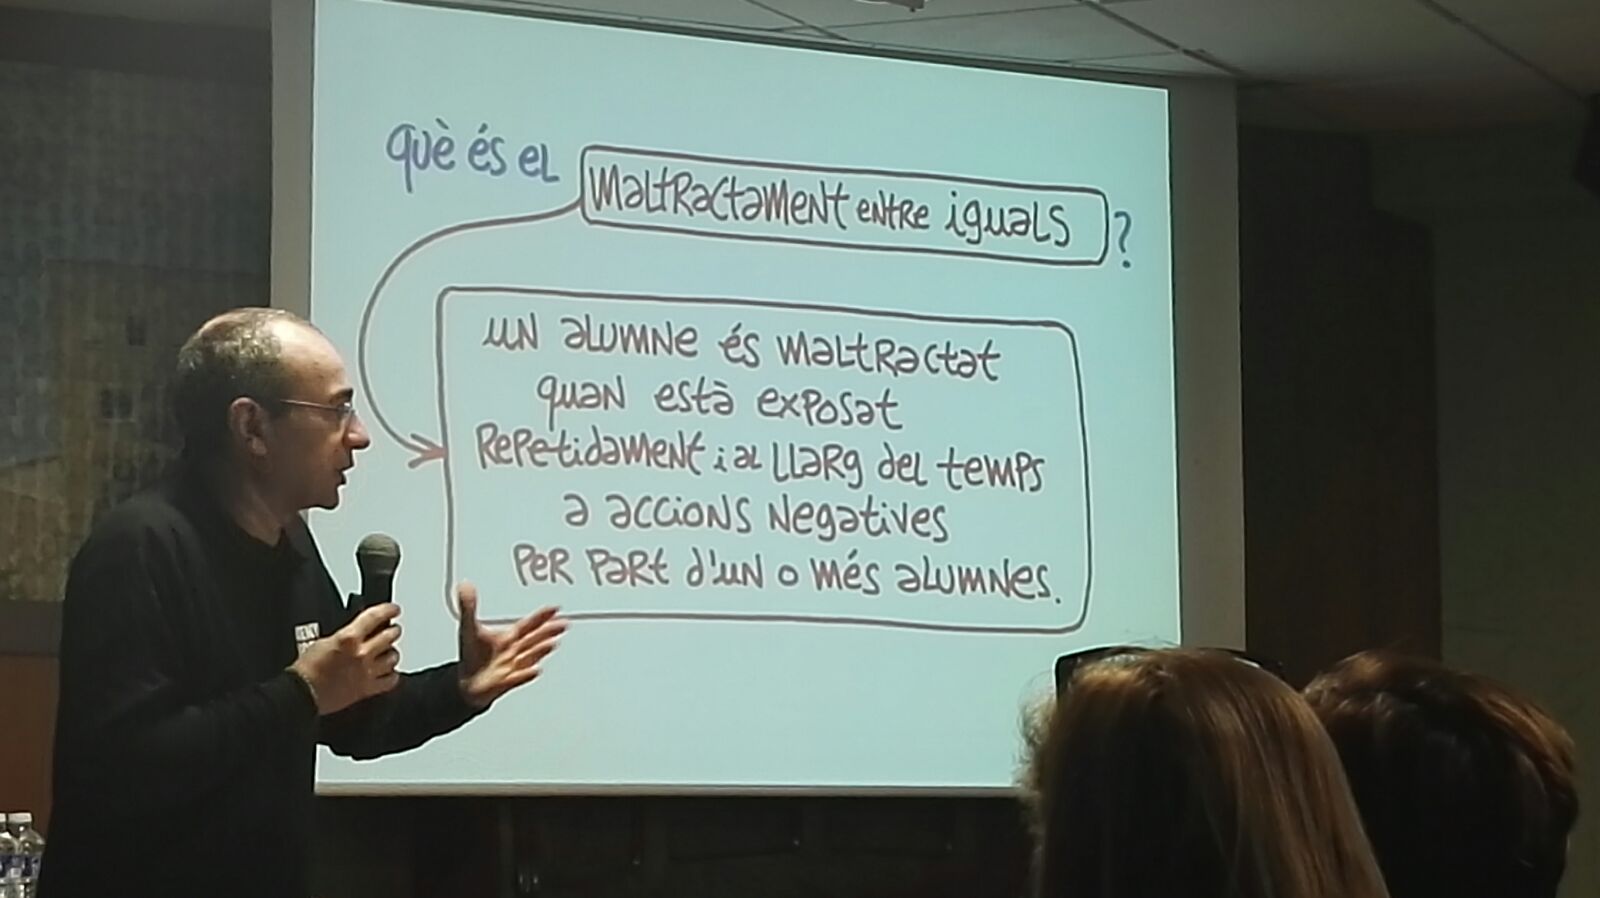 què és el maltractament entre iguals?
un alumne és maltractat
quan està exposat
repetidament i al llarg del temps
a accions negatives
per part d'un o més alumnes.